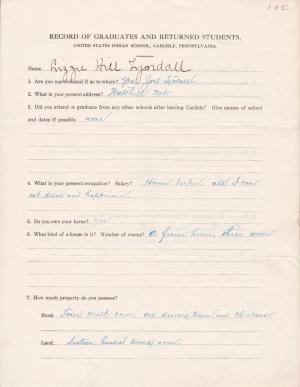 105
RECORD OF GRADUATES AND RETURNED STUDENTS.
UNITED STATES INDIAN SCHOOL, CARLISLE, PENNSYLVANIA.
Name Lizzie Hill Tyndall
1. Are you married and if so to whom? Yes, Joel Tyndall
2. What is your present address? Walthill Neb.
3. Did you attend or graduate from any other schools after leaving Carlisle? Give names of school
and dates if possible none
4. What is your present occupation? Salary? House all I can
eat dress and happiness
5. Do you own your home? yes
6. What kind of a house is it? Number of rooms? a frame house three rooms
7. How much property do you possess?
Stock Four milk cows one driving team and chickens
Land Sixteen hundred acres